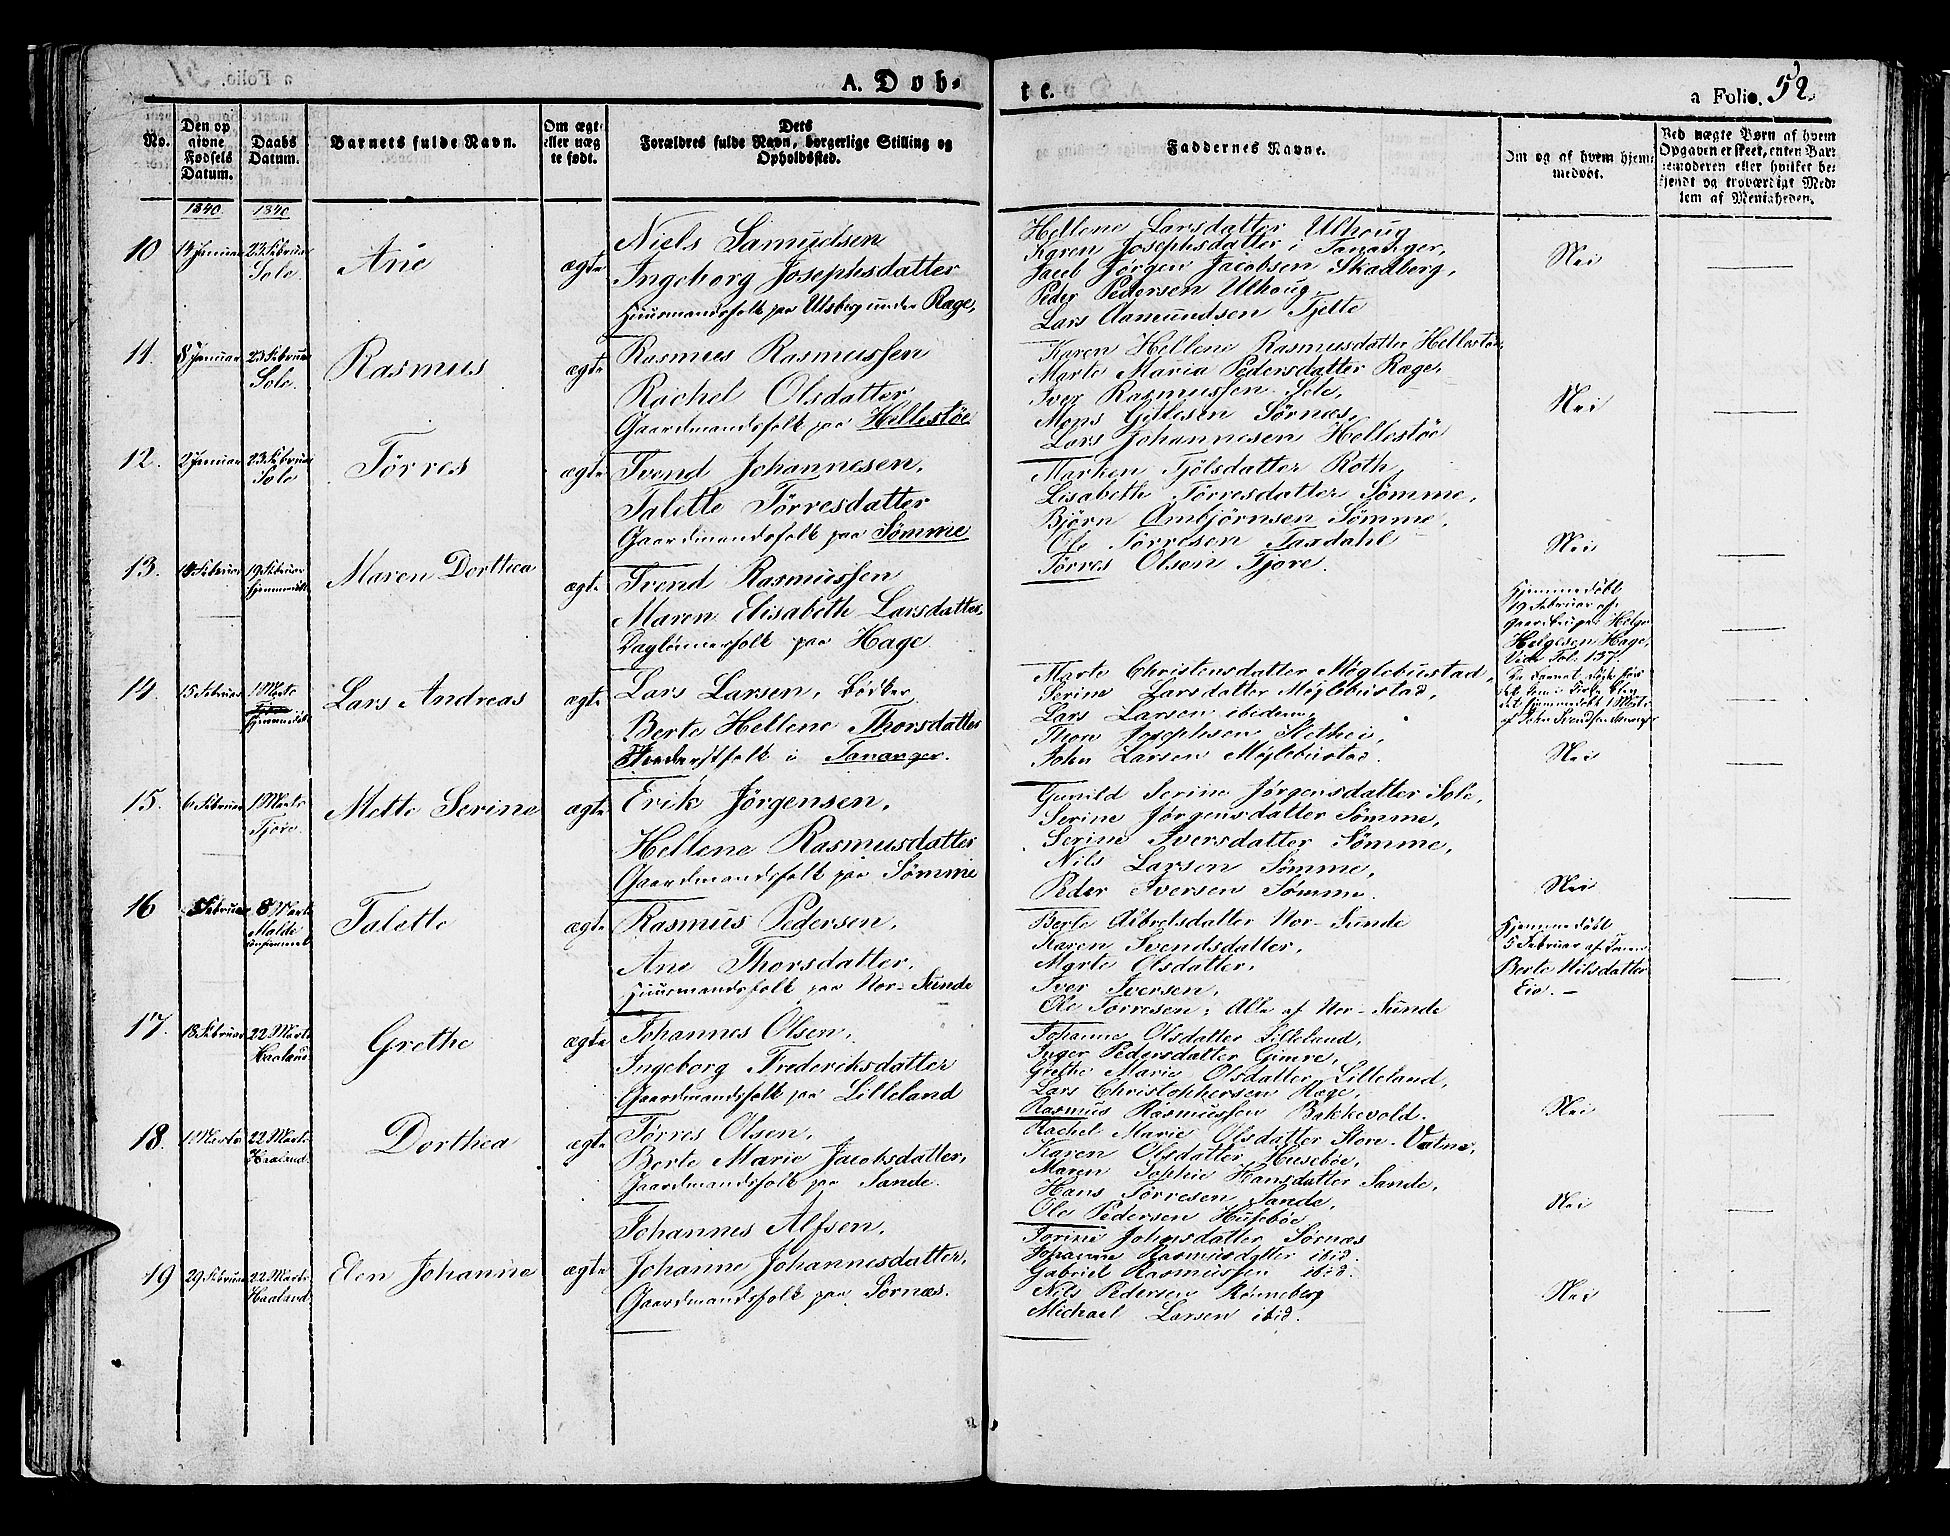 A. Døb-
te.
a Folio. 52.
No.
Den op
givne
Fødsels
Datum.
Daabs
Datum.
Barnets fulde Navn.
Om ægte
eller uæg
te født.
Dets
Forældres fulde Navn, borgerlige Stilling og
Opholdssted.
Faddernes Navne.
Om og af hvem hjem-
medøbt.
Ved uægte Børn af hvem
Opgaven er skeet, enten Bar-
nemoderen eller hvilket be-
kjendt og troværdigt Med-
lem af Menigheden.
1840.
1840
10
14 Januar
23 Februar
Sole.
Ane
ægte
Niels Samuelsen
Ingeborg Josephsdatter
Huusmandsfolk paa Ulsberg under Ræge,
Hellene Larsdatter Ulhoug
Karen Josephsdatter i Tananger,
Jacob Jørgen Jacobsen Skadberg,
Peder Pedersen Ulhoug,
Lars Aamundsen Tjelte
Nei
11.
8 Januar
23 Februar
Sole.
Rasmus
ægte
Rasmus Rasmussen
Rachel Olsdatter
Gaardmandsfolk paa Hellestøe
Karen Hellene Rasmusdatter Hellestøe
Marte Maria Pedersdatter Ræge,
Iver Rasmussen Sole,
Mons Gitlesen Sørnæs,
Lars Johannesen Hellestøe
Nei
12.
2 Januar
23 Februar
Sole
Tørres
ægte
Svend Johannesen,
Talette Tørresdatter
Gaardmandsfolk paa Sømme
Marken Tjølsdatter Roth
Lisabeth Tørresdatter Sømme,
Bjørn Ambjørnsen Sømme,
Ole Tørresen Taxdahl
Tørres Olsen Tjore.
Nei
13.
18 Februar
19 Februar
Hjemmedøbt
Maren Dorthea
ægte
Svend Rasmussen
Maren Elisabeth Larsdatter,
Daglønnerfolk paa Hage
Hjemmedøbt
19 Februar af
Helge
Helgesen Hage,
Vide Fol. 137.
14.
15 Februar
1 Marts
Hjemmedøbt
Lars Andreas
ægte
Lars Larsen, Bødker
Berte Hellene Thorsdatter
i Tananger.
Marte Christensdatter Møglebustad,
Serine Larsdatter Møglebustad,
Lars Larsen ibedem,
Thore Josephsen
John Larsen Møglebustad.
Nei
15.
6 Februar
1 Marts
Tjore.
Mette Serine
ægte
Erik Jørgensen,
Hellene Rasmusdatter
Gaardmandsfolk paa Sømme
Gunild Serine Jørgensdatter Sole,
Serine Jørgensdatter Sømme,
Serine Iversdatter Sømme,
Nils Larsen Sømme,
Peder Iversen Sømme.
Nei
16
5 Februar
8 Marts
Malde
Talette
ægte
Rasmus Pedersen,
Ane Thorsdatter,
Huusmandsfolk paa Nor-Sunde
Berte Asbrelsdatter Nor-Sunde
Karen Svendsdatter,
Marte Olsdatter,
Iver Iversen,
Ole Torresen, Alle af Nor-Sunde
Hjemmedøbt
5 Februar af Konen
Berte Nilsdatter
Eie. –
17.
18 Februar
22 Marts
Haaland.
Grethe
ægte
Johannes Olsen,
Ingeborg Frederiksdatter
Gaardmandsfolk paa Lilleland
Johanne Olsdatter Lilleland,
Inger Pedersdatter Gimre,
Grethe Marie Olsdatter Lilleland,
Lars Christophersen Ræge,
Rasmus Rasmussen Bakkevold.
Nei
18.
1 Marts
22 Marts
Haaland.
Dorthea
ægte
Tørres Olsen,
Berte Marie Jacobsdatter,
Gaardmandsfolk paa Sande.
Rachel Marie Olsdatter Store-Vatne,
Karen Olsdatter Husebøe,
Maren Sophie Hansdatter Sande,
Hans Tørresen Sande,
Ole Pedersen Husebøe
Nei
19
29 Februar
22 Marts
Haaland
Elen Johanne
ægte
Johannes Alfsen,
Johanne Johannesdatter,
Gaardmandsfolk paa Sørnæs.
Torine Johnsdatter Sørnæs
Johanne Rasmusdatter ibid.
Gabriel Rasmussen ibid.
Nils Pedersen Rønneberg
Michael Larsen ibid.
Nei